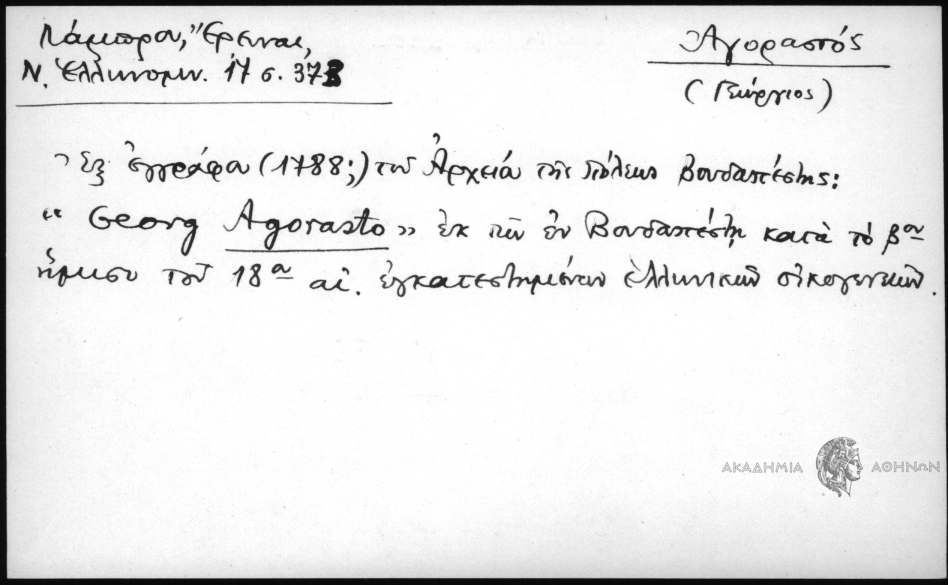 Λάμπρου, Ἔρευναι,
Ν. Ἑλληνομν. 17 σ. 373
Ἀγοραστός
(Γεώργιος)
Ἐξ ἐγγράφου (1788;) τοῦ Ἀρχείου τῆς πόλεως Βουδαπέστης:
"Georg Agorasto" ἐκ τῶν ἐν Βουδαπέστῃ κατὰ τὸ βον
ἥμισυ τοῦ 18ου αἰ. ἐγκατεστημένων ἑλληνικῶν οἰκογενειῶν.
ΑΚΑΔΗΜΙΑ ΑΘΗΝΩΝ